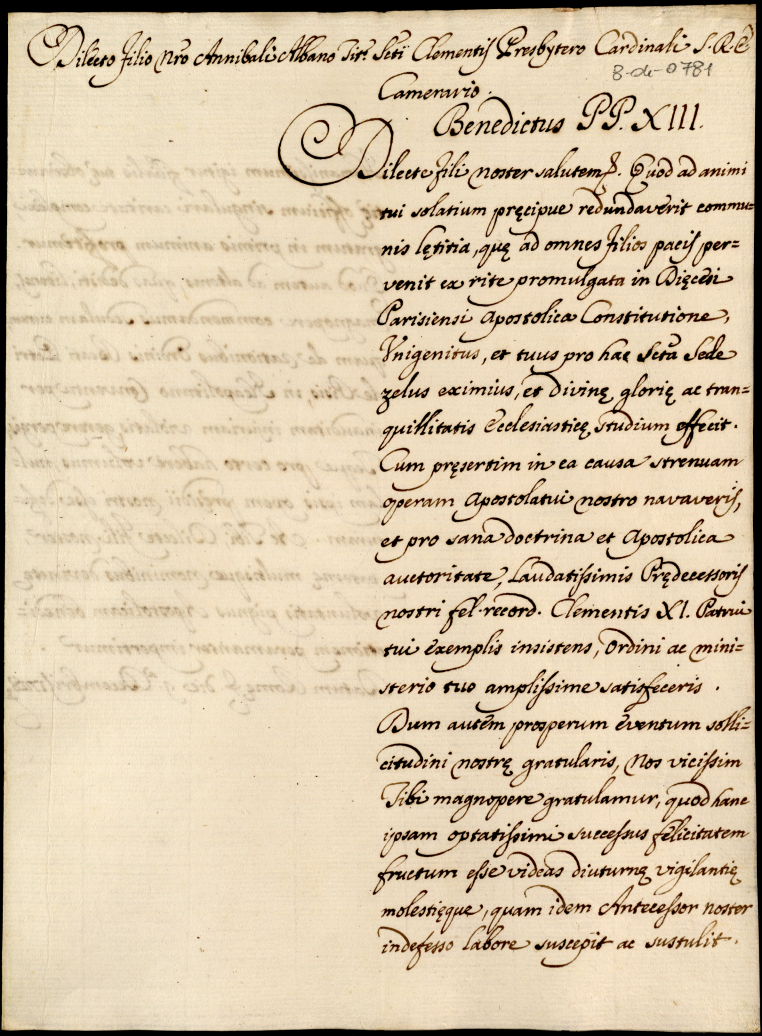 Dilecto filio Nro Annibali Albano Titi Scti Clementis Presbytero Cardinali S. R. E
8-de-0781
Camerario.
Benedictus PP. XIII.
Dilecte fili noster salutem &. Quod ad animi
tui solatium pręcipue redundaverit commu=
nis lętitia, quę ad omnes filios pacis per=
venit ex rite promulgata in Dięcesi
Parisiensi Apostolica Constitutione,
Unigenitus, et tuus pro hac Scta Sede
zelus eximius, et divinę glorię ac tran=
quillitatis Ecclesiasticę studium effecit.
Cum pręsertim in ea causa strenuam
operam Apostolatui nostro navaveris,
et pro sana doctrina et Apostolica
auctoritate, laudatissimis Prędecessoris
nostri fel. record. Clementis XI. Patrui
tui exemplis insistens, Ordini ac mini=
sterio tuo amplissime satisfeceris.
Dum autem prosperum eventum solli=
citudini nostrę gratularis, Nos vicissim
Tibi magnopere gratulamur, quod hanc
ipsam optatissimi successus felicitatem
fructum esse videas diuturnę vigilantię
molestięque, quam idem Antecessor noster
indefesso labore suscepit ac sustulit.